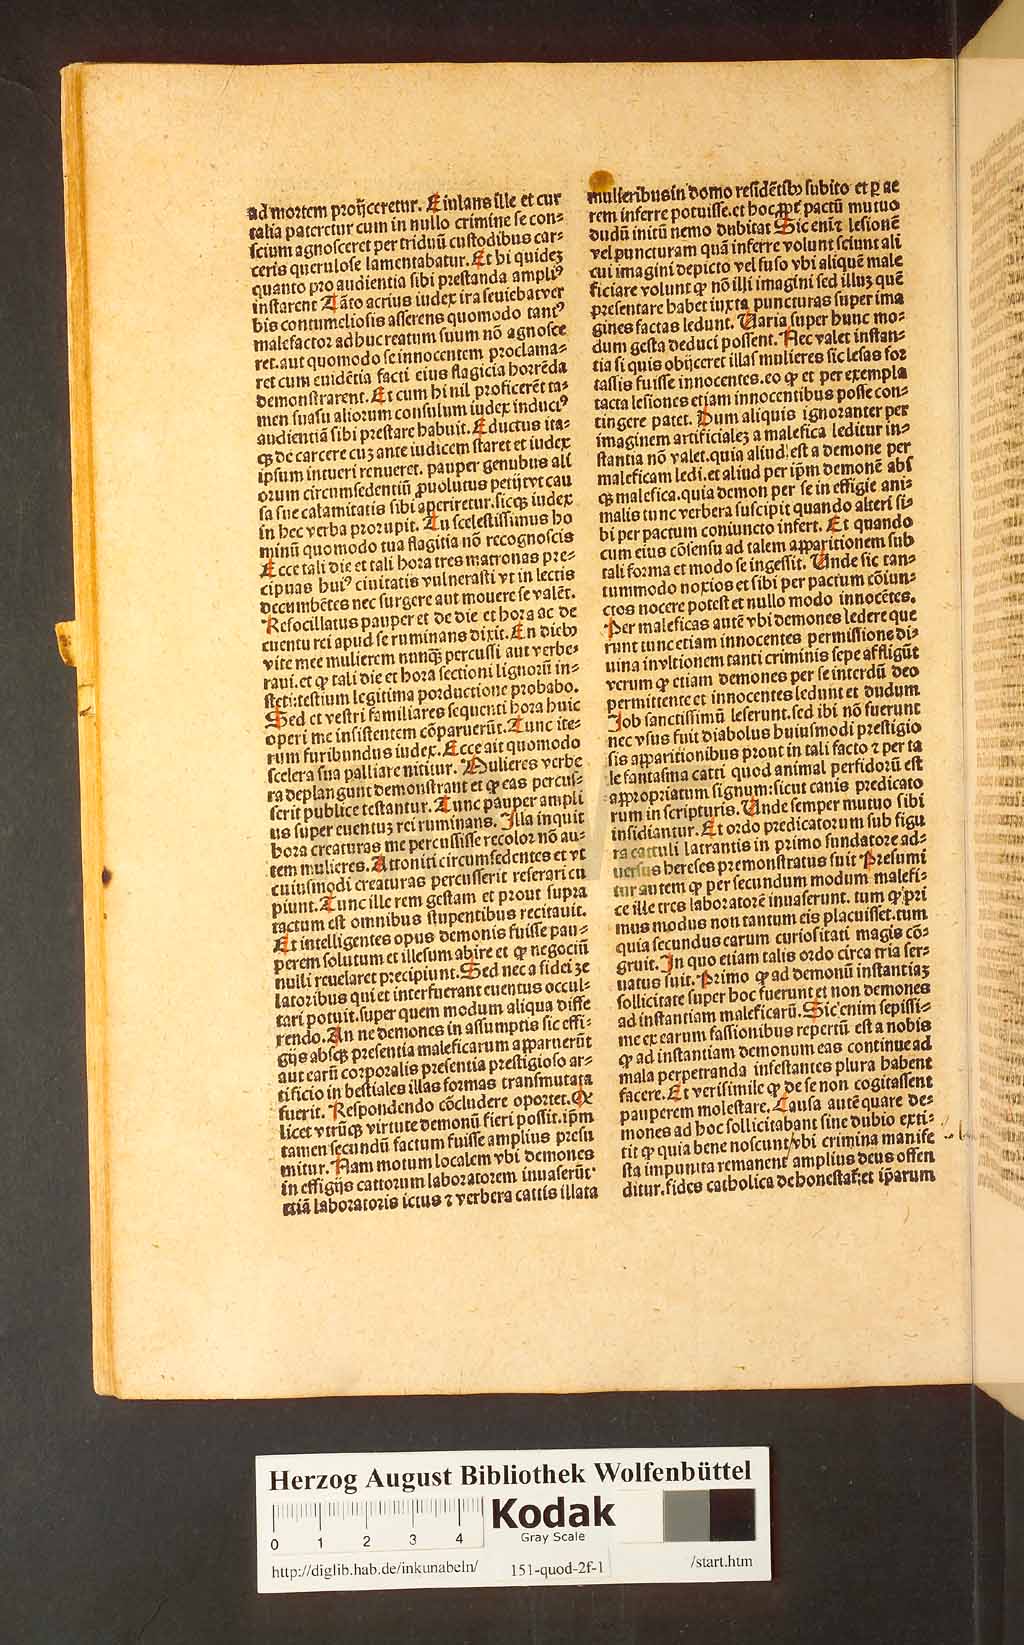 ad mortem proijceretur. Eiulans ille et cur
talia pateretur cum in nullo crimine se con⸗
scium agnosceret per triduū custodibus car⸗
ceris querulose lamentabatur. Et hi quideꝫ
quanto pro audientia sibi prestanda ampliꝰ
instarent Tāto acrius iudex ira seuiebat ver
bis contumeliosis asserens quomodo tantꝰ
malefactor adhuc reatum suum nō agnosce
ret. aut quomodo se innocentem proclama⸗
ret cum euidētia facti eius flagicia horrēda
demonstrarent. Et cum hi nil proficerēt ta⸗
men suasu aliorum consulum iudex inductꝰ
audientiā sibi prestare habuit. Eductus ita⸗
qꝫ de carcere cuꝫ ante iudicem staret et iudex
ipsum intueri renueret. pauper genubus ali
orum circumsedentiū ꝓuolutus petijt vt cau
sa sue calamitatis sibi aperiretur. sicqꝫ iudex
in hec verba prorupit. Tu scelestissimus ho
minū quomodo tua flagitia nō recognoscis
Ecce tali die et tali hora tres matronas pre⸗
cipuas huiꝰ ciuitatis vulnerasti vt in lectis
decumbētes nec surgere aut mouere se valēt.
Refocillatus pauper et de die et hora ac de
euentu rei apud se ruminans dixit. En diebꝫ
vite mee mulierem nunqꝫ percussi aut verbe⸗
raui. et ꝙ tali die et hora sectioni lignorū in⸗
steti: testium legitima porductione probabo.
Sed et vestri familiares sequenti hora huic
operi me insistentem cōparuerūt. Tunc ite⸗
rum furibundus iudex. Ecce ait quomodo
scelera sua palliare nititur. Mulieres verbe
ra deplangunt demonstrant et ꝙ eas percus⸗
serit publice testantur. Tunc pauper ampli
us super euentuꝫ rei ruminans. Illa inquit
hora creaturas me percussisse recolor nō au⸗
tem mulieres. Attoniti circumsedentes et vt
cuiusmodi creaturas percusserit referari cu
piunt. Tunc ille rem gestam et prout supra
tactum est omnibus stupentibus recitauit.
Et intelligentes opus demonis fuisse pau⸗
perem solutum et illesum abire et ꝙ negociū
nulli reuelaret precipiunt. Sed nec a fidei ze
latoribus qui et interfuerant euentus occul⸗
tari potuit. super quem modum aliqua diffe
rendo. An ne demones in assumptis sic effi⸗
gijs absqꝫ presentia maleficarum apparuerūt
aut earū corporalis presentia prestigioso ar⸗
tificio in bestiales illas formas transmutata
fuerit. Respondendo cōcludere oportet. Qꝫ
licet vtrūqꝫ virtute demonū fieri possit. ip̄m
tamen secundū factum fuisse amplius presu
mitur. Nam motum localem vbi demones
in effigijs cattorum laboratorem inuaserūt·
etiā laboratoris ictus ⁊ verbera cattis illata
mulieribus in domo residētibꝫ subito et ꝑ ae
rem inferre potuisse. et hoc ꝓpt̄ pactū mutuo
dudū initū nemo dubitat Sic eni⁊ lesionē
vel puncturam quā inferre volunt sciunt ali
cui imagini depicto vel fuso vbi aliquē male
ficiare volunt ꝙ nō illi imagini sed illuꝫ quē
presentare habet iuxta puncturas super ima
gines factas ledunt. Varia super hunc mo⸗
dum gesta deduci possent. Nec valet instan⸗
tia si quis obijceret illas mulieres sic lesas for
tassis fuisse innocentes. eo ꝙ et per exempla
tacta lesiones etiam innocentibus posse con⸗
tingere patet. Dum aliquis ignoranter per
imaginem artificialeꝫ a malefica leditur in⸗
stantia nō valet. quia aliud est a demone per
maleficam ledi. et aliud per ip̄m demonē abs
qꝫ malefica. quia demon per se in effigie ani⸗
malis tunc verbera suscipit quando alteri si⸗
bi per pactum coniuncto infert. Et quando
cum eius cōsensu ad talem apparitionem sub
tali forma et modo se ingessit. Vnde sic tan⸗
tummodo noxios et sibi per pactum cōiun⸗
ctos nocere potest et nullo modo innocētes.
Per maleficas autē vbi demones ledere que
runt tunc etiam innocentes permissione di⸗
uina in vltionem tanti criminis sepe affligūt
verum ꝙ etiam demones per se interdū deo
permittente et innocentes ledunt et dudum
Iob sanctissimū leserunt. sed ibi nō fuerunt
nec vsus fuit diabolus huiusmodi prestigio
sis apparitionibus pront in tali facto ⁊ per ta
le fantasma catti quod animal perfidorū est
appropriatum signum: sicut canis predicato
rum in scripturis. Vnde semper mutuo sibi
insidiantur. Et ordo predicatorum sub figu
ra cattuli latrantis in primo fundatore ad⸗
uersus hereses premonstratus fuit Presumi
tur autem ꝙ per secundum modum malefi⸗
ce ille tres laboratorē inuaserunt. tum ꝙ pri
mus modus non tantum eis placuisset. tum
quia secundus earum curiositati magis cō⸗
gruit. In quo etiam talis ordo circa tria ser⸗
uatus fuit. Primo ꝙ ad demonū instantiaꝫ
sollicitate super hoc fuerunt et non demones
ad instantiam maleficarū. Sic enim sepissi⸗
me ex earum fassionibus repertū est a nobis
ꝙ ad instantiam demonum eas continue ad
mala perpetranda infestantes plura habent
facere. Et verisimile ꝙ de se non cogitassent
pauperem molestare. Causa autē quare de⸗
mones ad hoc sollicitabant sine dubio exti⸗
tit ꝙ quia bene noscunt vbi crimina manife
sta impunita remanent amplius deus offen
ditur. fides catholica dehonestat̄. et ip̄arum
Herzog August Bibliothek Wolfenbüttel
0 1 2 3 4
Kodak
Gray Scale
http://diglib.hab.de/inkunabeln/ 151-quod-2f-1 /start.htm